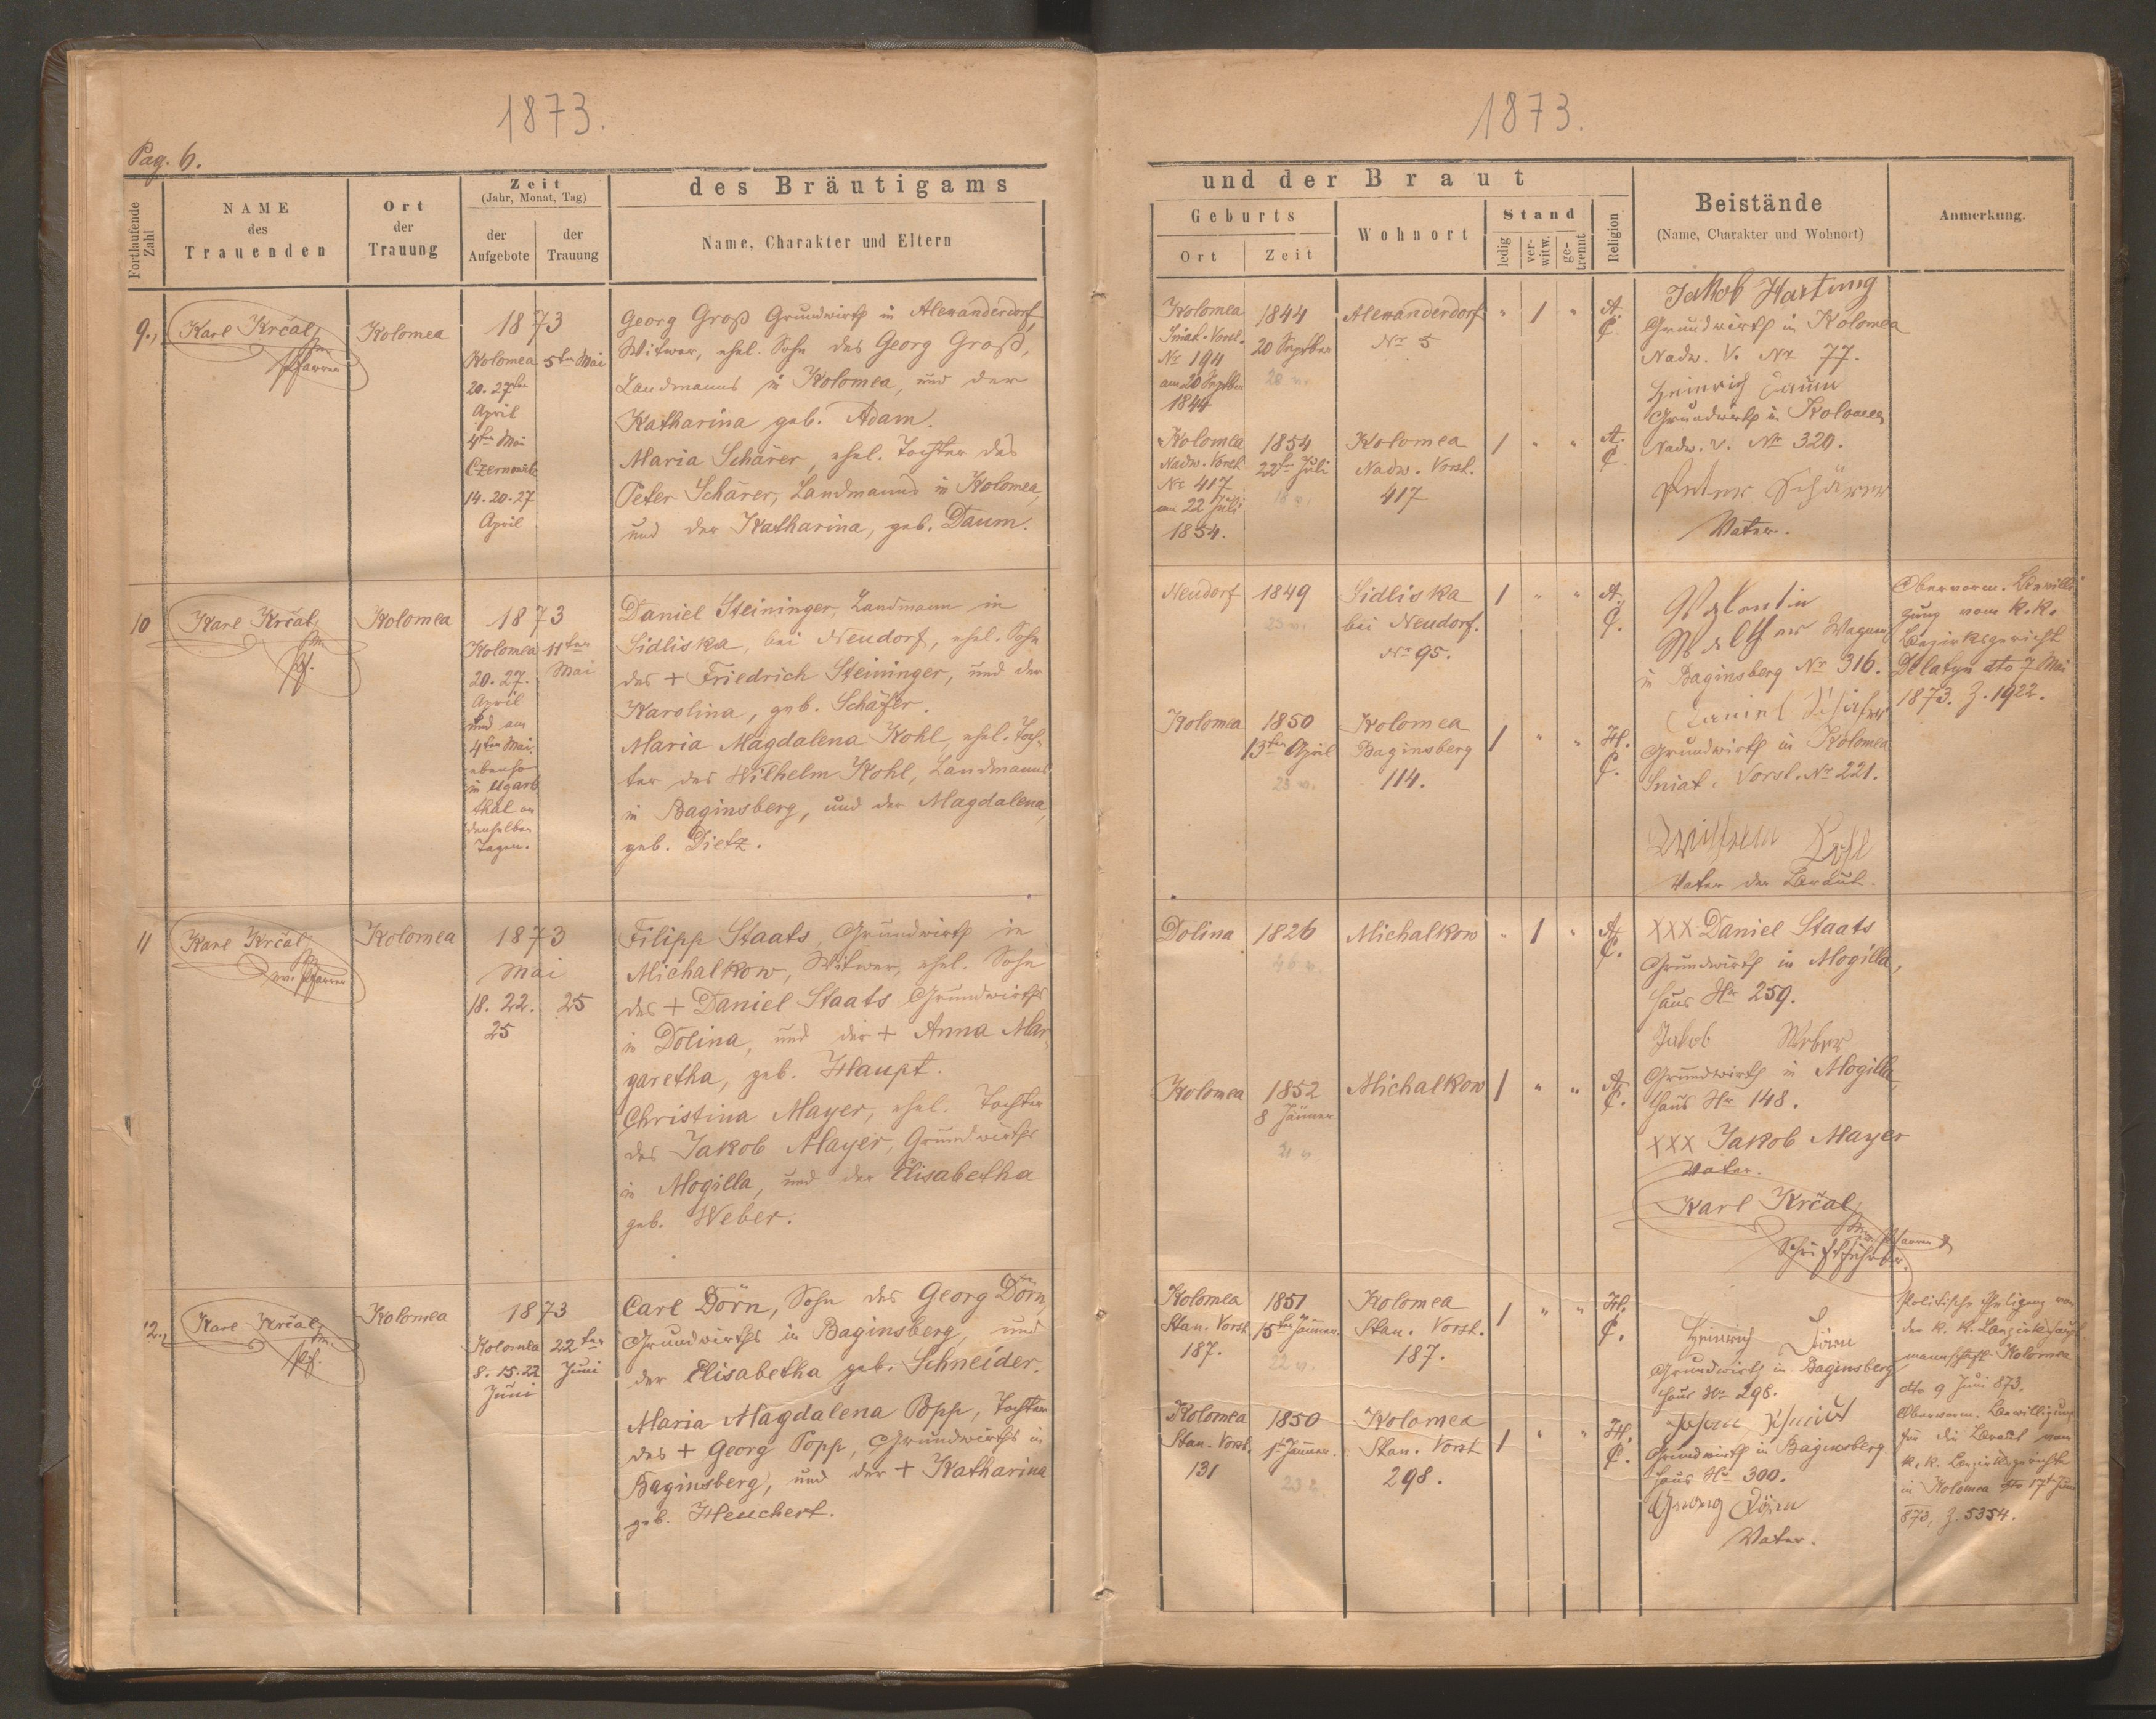 1873.
Pag. 6.
Fortlaufende Zahl
NAME
des
Trauenden
Ort
der
Trauung
Zeit
(Jahr, Monat, Tag)
der
Aufgebote
der
Trauung
des Bräutigams
Name, Charakter und Eltern
9.,
Karl Krčal,
Pfarrer
Kolomea
1873
Kolomea
20. 27ten
April
4ten Mai
14. 20. 27
April
5ten Mai
Georg Groß Grundwirth in Alexanderdorf,
Witwer, ehel. Sohn des Georg Groß,
Landmanns in Kolomea, und der
Katharina geb. Adam.
Maria Schärer, ehel. Tochter des
Peter Schärer, Landmanns in Kolomea,
und der Katharina, geb. Daum.
10
Karl Krčal,
Pf.
Kolomea
1873
Kolomea
20. 27.
April
und am
4ten Mai.
ebenso
in Ugarts
thal an
denselben
Tagen.
11ten
Mai
Daniel Steininger, Landmann in
Sidliska, bei Neudorf, ehel. Sohn
des + Friedrich Steininger, und der
Karolina, geb. Schäfer.
Maria Magdalena Kohl, ehel. Toch-
ter des Wilhelm Kohl, Landmanns
in Baginsberg, und der Magdalena,
geb. Dietz.
11
Karl Krčal,
ev. Pfarrer
Kolomea
1873
Mai
18. 22.
25
25
Filipp Staats, Grundwirth in
Michalkow, Witwer, ehel. Sohn
des + Daniel Staats Grundwirths
in Dolina, und der + Anna Mar-
garetha, geb. Haupt.
Christina Mayer, ehel. Tochter
des Jakob Mayer, Grundwirths
in Mogilla, und der Elisabetha
geb. Weber.
12.,
Karl Krčal,
Pf.
Kolomea
1873
Kolomea
8. 15. 22
Juni
22ten
Juni
Carl Dörn, Sohn des Georg Dörn,
Grundwirths in Baginsberg, und
der Elisabetha geb. Schneider.
Maria Magdalena Popp, Tochter
des + Georg Popp, Grundwirths in
Baginsberg, und der + Katharina
geb. Heuchert.
1873.
und der Braut
Geburts
Ort
Zeit
Wohnort
Stand
ledig
verwitw.
getrennt
Religion
Beistände
(Name, Charakter und Wohnort)
Anmerkung.
Kolomea
Sniat. Vorst.
Nr 194
am 20 Septber
1844
1844
20 Septber
28
Alexanderdorf
Nr 5
" 1 "
A.
C.
Jakob Hartung
Grundwirth in Kolomea
Nadw. V. Nr 77.
Heinrich Daum
Grundwirth in Kolomea
Nadw. V. Nr 320.
Kolomea
Nadw. Vorst.
Nr 417
am 22 Juli
1854.
1854
22ten Juli
18
Kolomea
Nadw. Vorst.
417
1 " "
A.
C.
Peter Schärer
Vater.
Neudorf
1849
23
Sidliska
bei Neudorf.
Nr 95.
1 " "
A.
C.
Valentin
in Baginsberg Nr 316.
Daniel Schäfer
Grundwirth in Kolomea
Sniat. Vorst. Nr 221.
Wilhelm Kohl
Vater der Braut.
Obervorm. Bewilli-
gung vom k. k.
Bezirksgericht
Delatyn dto 7 Mai
1873. Z. 1922.
Kolomea
1850
13ten April
23
Kolomea
Baginsberg
114.
1 " "
H.
C.
Dolina
1826
46
Michalkow
" 1 "
A.
C.
XXX Daniel Staats
Grundwirth in Mogilla,
Haus Nr 259.
Jakob Weber
Grundwirth in Mogilla,
Haus Nr 148.
XXX Jakob Mayer
Vater.
Karl Krčal,
Pfarrer
Schriftführer.
Kolomea
1852
8 Jänner
21
Michalkow
1 " "
A.
C.
Kolomea
Stan. Vorst.
187.
1851
15ten Jänner.
22
Kolomea
Stan. Vorst.
187.
1 " "
H.
C.
Heinrich Dörn
Grundwirth in Baginsberg
Haus Nr 298.
Grundwirth in Baginsberg
Haus Nr 300.
Georg Dörn
Vater.
der k. k. Bezirkshaupt-
mannschaft Kolomea
dto 9 Juni 873.
Obervorm. Bewilligung
für die Braut vom
k. k. Bezirksgerichte
in Kolomea dto 17t Juni
873, Z. 5354.
Kolomea
Stan. Vorst.
131
1850
1t Jänner.
23
Kolomea
Stan. Vorst
298.
1 " "
H.
C.